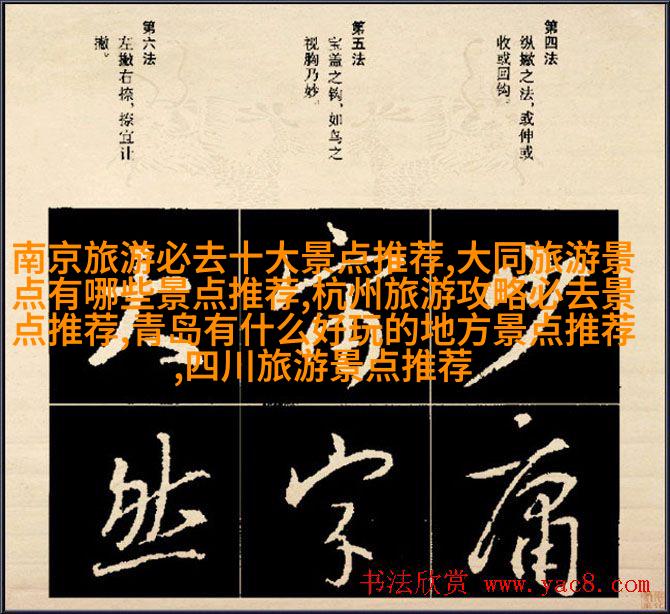 第四法
纵撇之法，或伸或
收或回钩。
第五法
宝盖之钩，如鸟之
视胸乃妙。
第六法
左撇右捺，捺宜让
撇。
南京旅游必去十大景点推荐,大同旅游景
点有哪些景点推荐,杭州旅游攻略必去景
点推荐,青岛有什么好玩的地方景点推荐
,四川旅游景点推荐
少
庸
宇
然
书法欣赏 www.yac8.com